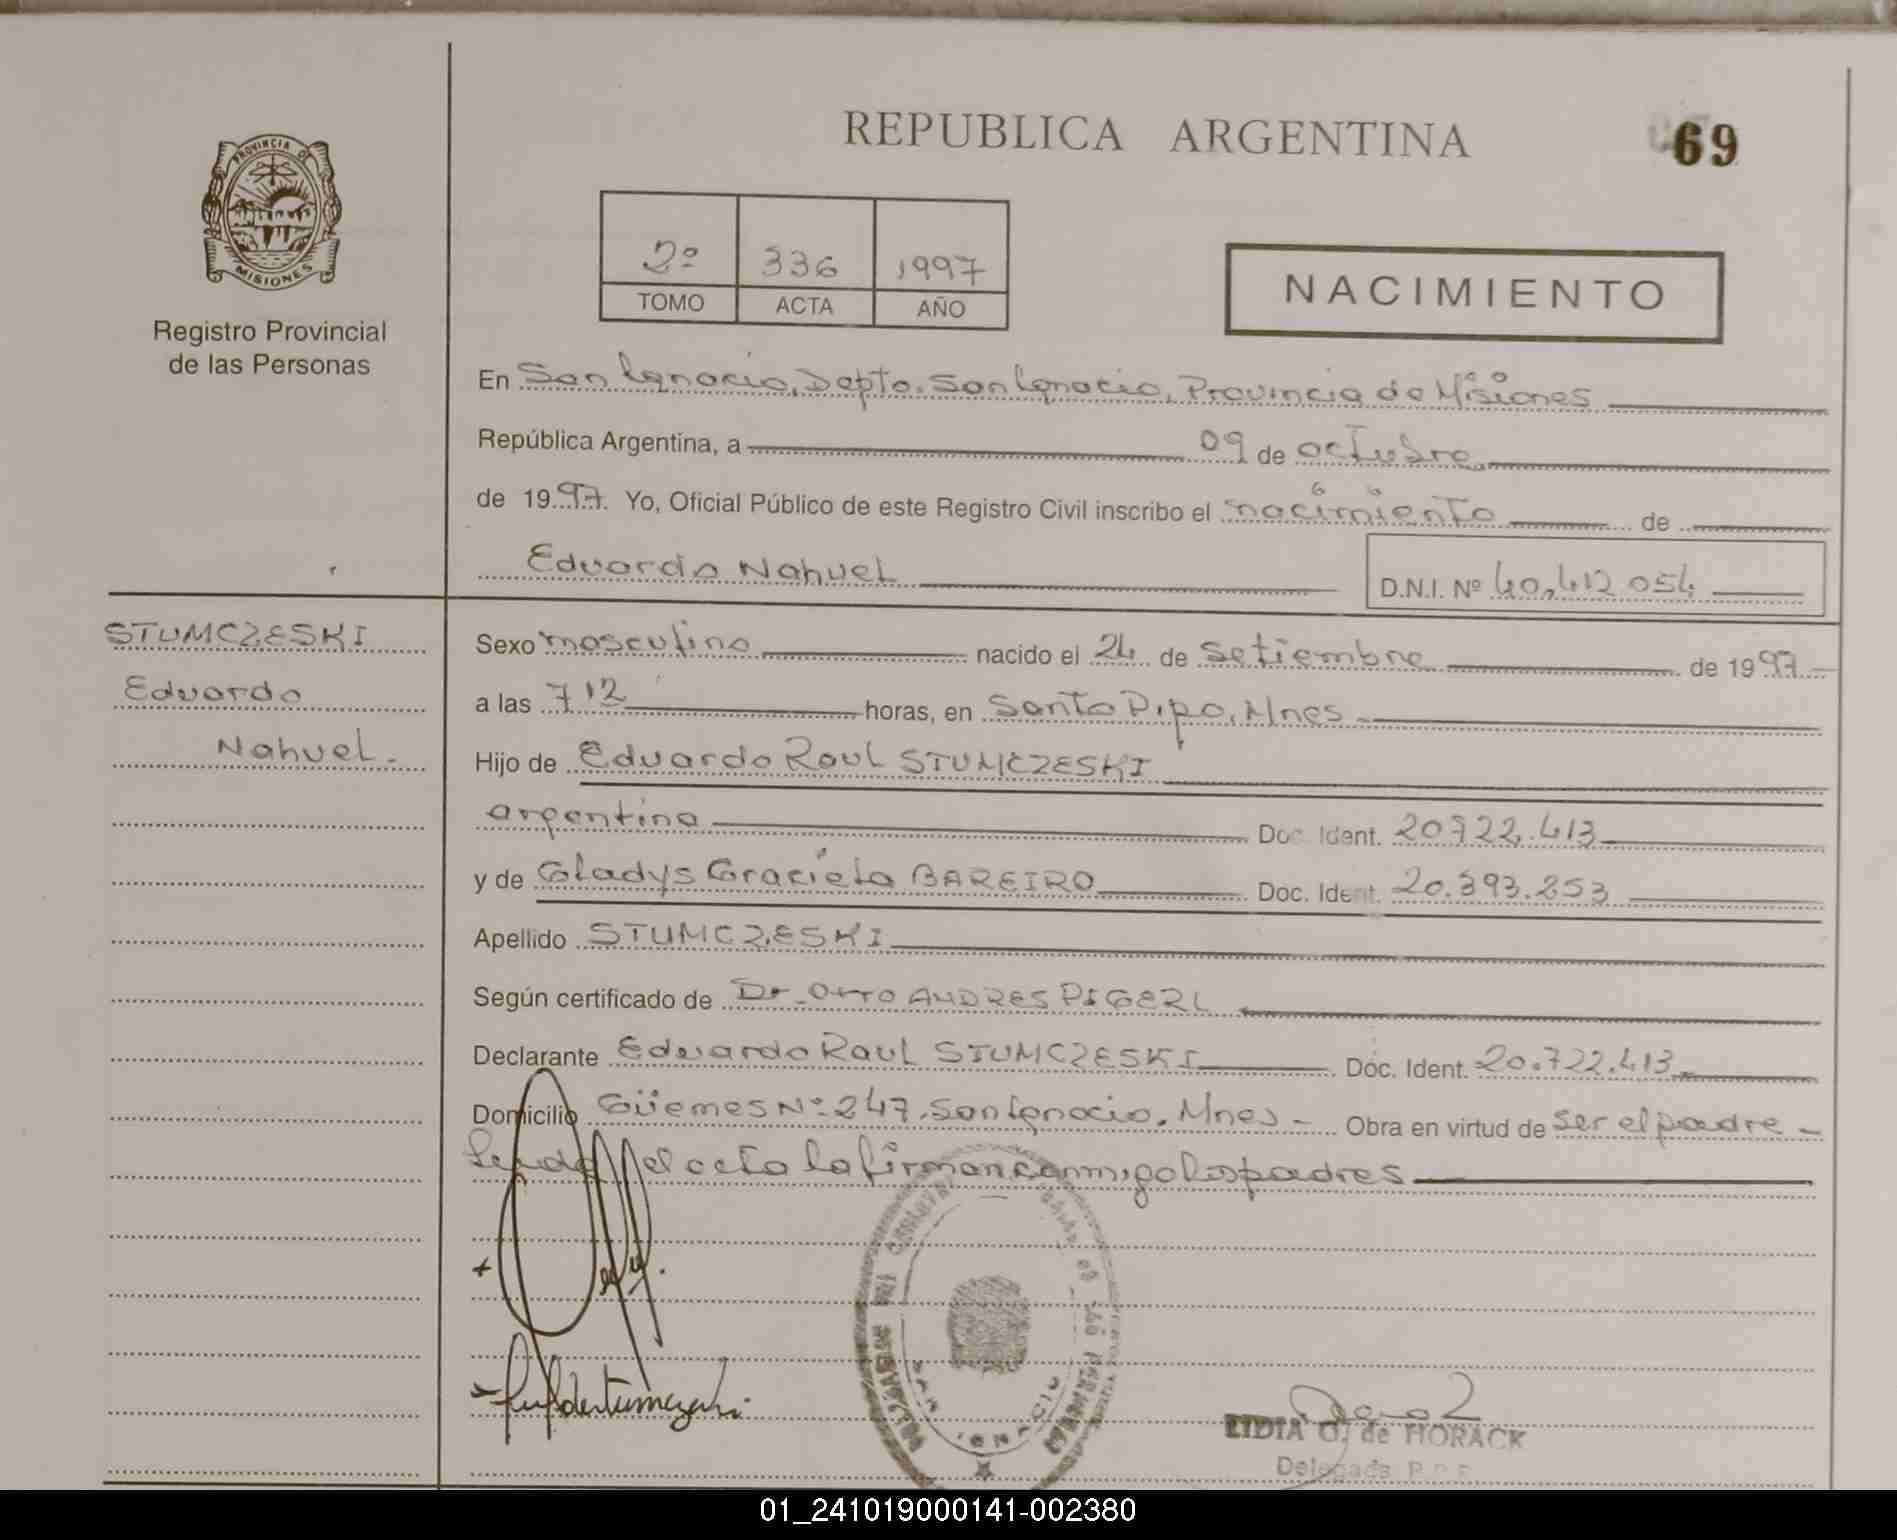 REPUBLICA ARGENTINA
69
PROVINCIA DE
MISIONES
Registro Provincial
de las Personas
2º 336 1997
TOMO ACTA AÑO
NACIMIENTO
En San Ignacio, Depto. San Ignacio, Provincia de Misiones
República Argentina, a 09 de octubre
de 1997. Yo, Oficial Público de este Registro Civil inscribo el nacimiento de
Eduardo Nahuel D.N.I. Nº 40.412.054
STUMCZESKI
Eduardo
Nahuel.-
Sexo masculino nacido el 24 de Setiembre de 1997
a las 7 12 horas, en Santo Pipo, Mnes
Hijo de Eduardo Raul STUMCZESKI
argentina Doc. Ident. 20.722.413
y de Gladys Graciela BAREIRO Doc. Ident. 20.393.253
Apellido STUMCZESKI
Según certificado de Dr. Otto ANDRES PIGERL
Declarante Eduardo Raul STUMCZESKI Doc. Ident. 20.722.413
Domicilio Güemes Nº 247, San Ignacio, Mnes - Obra en virtud de ser el padre -
Leida el acta la firman conmigo los padres
SAN IGNACIO
LIDIA O. de HORACK
Delegada R.P.P.
01_241019000141-002380